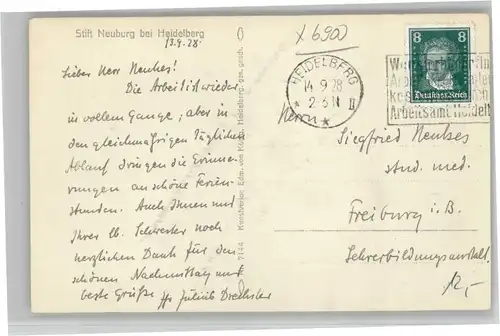 Stift Neuburg bei Heidelberg
13.9.28.
x 6900
Lieber Herr Neukes!
Die Arbeit ist wieder
in vollem Gange, aber in
den gleichmäßigen täglichen
Ablauf dringen die Erinne-
rungen an schöne Ferien-
stunden. Auch Ihnen und
Ihrer lb. Schwester noch
herzlichen Dank für den
schönen Nachmittag und
beste Grüße Ihr Julius Drechsler
Kunstverlag Edm. von König, Heidelberg, ges. gesch.
7144
HEIDELBERG
14.9.28
II
8 8
Deutsches Reich
Arbeitsamt Heidel
Herrn
Siegfried Neukes
stud. med.
Freiburg i. B.
Lehrerbildungsanstalt.
12,-